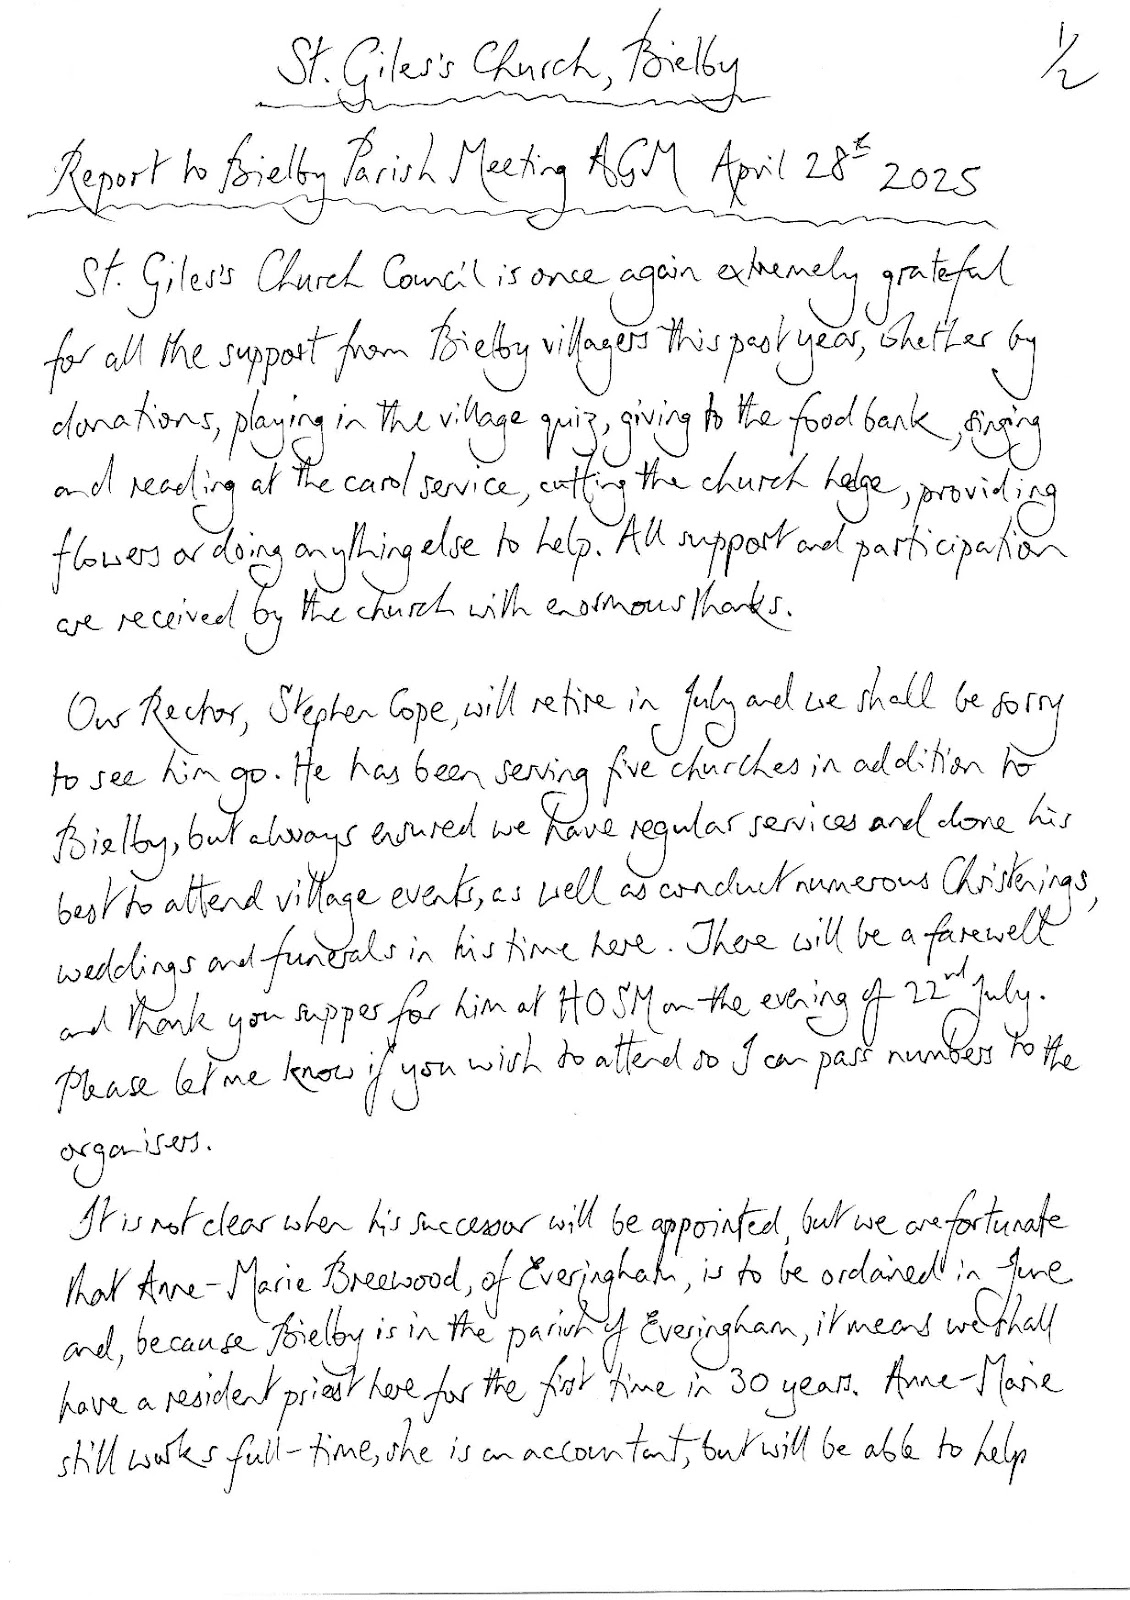 St. Giles's Church, Bielby
1/2
Report to Bielby Parish Meeting AGM April 28th 2025
St. Giles's Church Council is once again extremely grateful
for all the support from Bielby villagers this past year, whether by
donations, playing in the village quiz, giving to the food bank, singing
and reading at the carol service, cutting the church hedge, providing
flowers or doing anything else to help. All support and participation
are received by the church with enormous thanks.
Our Rector, Stephen Cope, will retire in July and we shall be sorry
to see him go. He has been serving five churches in addition to
Bielby, but always ensured we have regular services and done his
best to attend village events, as well as conduct numerous Christenings,
weddings and funerals in his time here. There will be a farewell
and thank you supper for him at HOSM on the evening of 22nd July.
Please let me know if you wish to attend so I can pass numbers to the
organisers.
It is not clear when his successor will be appointed, but we are fortunate
that Anne-Marie Breewood, of Everingham, is to be ordained in June
and, because Bielby is in the parish of Everingham, it means we shall
have a resident priest here for the first time in 30 years. Anne-Marie
still works full-time, she is an accountant, but will be able to help